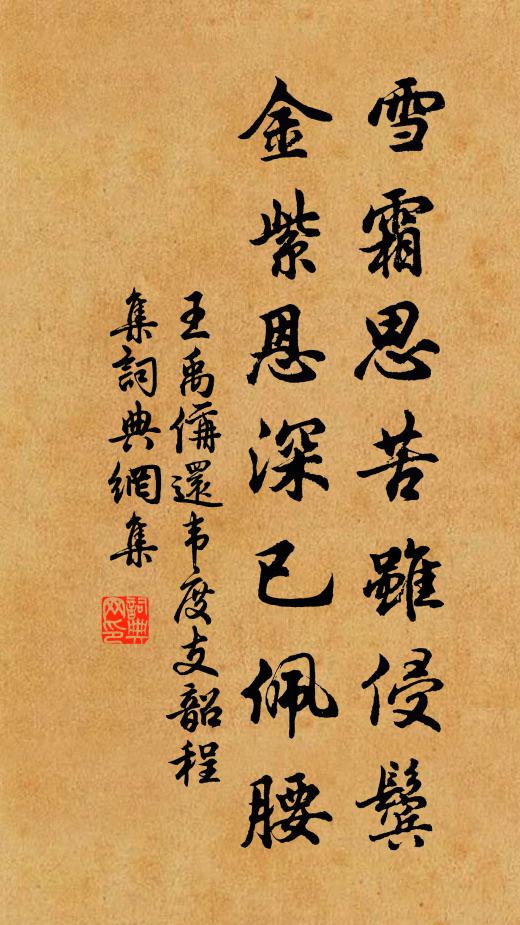 雪霜思苦雖侵鬢
金紫恩深已佩腰
王禹偁還韦度支韶程
集詞典網集
詞典網印